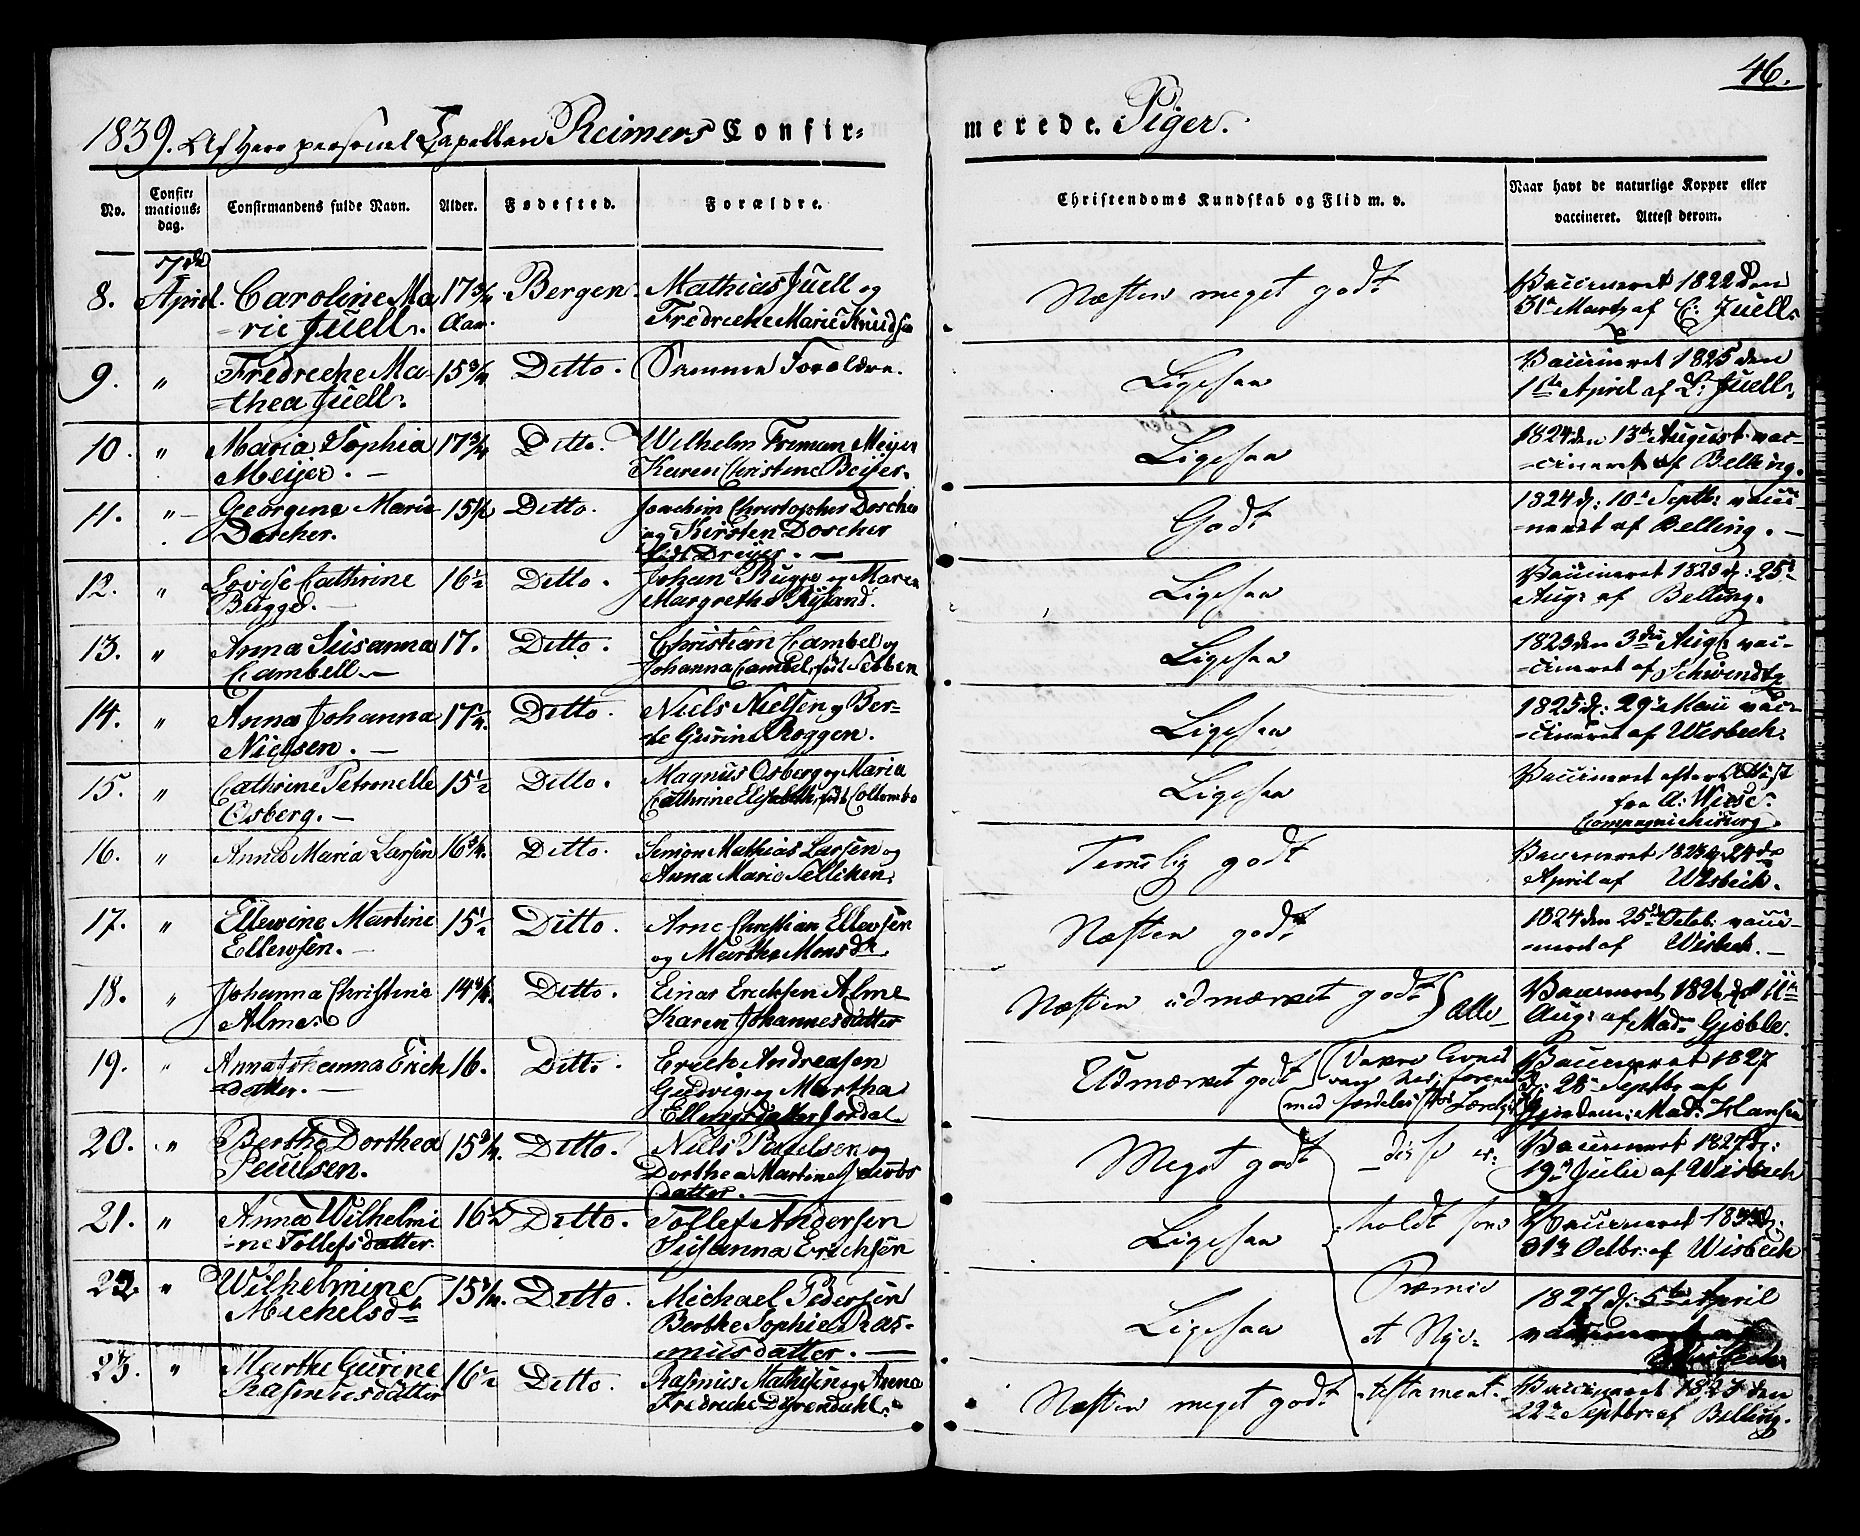 46.
1839. Af Herr personel Capellan Reimers Confir=
merede. Piger.
No.
Confir=
mations=
dag.
Confirmandens fulde Navn.
Alder.
Fødested.
Forældre.
Christendoms Kundskab og Flid m. v.
Naar havt de naturlige Kopper eller
vaccineret. Attest derom.
8. 7de April. Caroline Ma
=rie Juell. 17 3/4 Aar. Bergen. Mathias Juell og
Fredrecke Marie Knudsen
Næsten meget godt
Vaccineret 1822 den
31te Marts af C. Juell
9. " Fredrecke Ma=
=thea Juell. 15 3/4 Ditto. Samme Forældre.
Ligesaa
Vaccineret 1825 den
1ste April af C. Juell.
10. " Maria Sophia
Meijer. 17 3/4 Ditto. Wilhelm Meijer
Karen Christine Beijer.
Ligesaa
1824 den 13de August vac=
=cineret af Belling.
11. " Georgine Marie
Doscher. 15 1/2 Ditto. Joachim Christopher Doscher
og Kirsten Doscher
født Dreijer.
Godt
1824 d: 10de Septbr: vacci=
=neret af Belling.
12. " Lovise Cathrine
Bugge. 16 1/2 Ditto. Johan Bugge og Maren
Margrethe
Ligesaa
Vaccineret 1823 d: 25de
Aug: af Belling.
13. " Anna Susanna
Cambell. 17. Ditto. Christian Cambel og
Johanna Cambel, født Sebben
Ligesaa
1823 den 3die Aug: vac=
=cineret af Schwindt
14. " Anna Johanna
Nielsen. 17 1/4. Ditto. Niels Nielsen og Ber=
=te Gurine Roggen.
Ligesaa
1825 d: 29de Maii vac=
=cineret af Wisbech.
15. " Cathrine Petronelle
Osberg. 15 1/2 Ditto. Magnus Osberg og Maria
Cathrine Elisabeth, født Collombo
Ligesaa
Vaccineret efter Attest
fra A: Wiese.
Compagniechirurg.
16. " Anna Maria Larsen 16 3/4. Ditto. Simon Mathias Larsen og
Anna Marie Telliken.
Temelig godt
Vaccineret 1823 d. 24de
April af Wisbech.
17. " Ellewine Martine
Ellewsen. 15 1/2 Ditto. Arne Christian Ellewsen
og Marthe Monsdtr
Næsten godt
1824 den 25de Octob: vacci=
=neret af Wisbech.
18. " Johanna Christine
Alme. 14 3/4. Ditto. Einar Ericksen Alme
Karen Johannesdatter
Næsten udmærket godt Alle
Vaccineret 1826 d. 11te
Aug: af Mad: Gjøble.
19. " Anna Johanna Erich
=datter. 16. Ditto. Erich Andreasen
Gudvig, og Martha
Ellingsdatter Jordal.
Udmærket godt
med særdeles
Vaccineret 1827
d: 28de Septbr af
Gjordem: Mad: Hansen
20. " Berthe Dorthea
Paulsen. 15 3/4. Ditto. Niels Paulsen og
Dorthea Martine Jacobs
datter.
Meget godt disse er:
Vaccineret 1827 d:
19de Julii af Wisbech
21. " Anna Wilhelmi
=ne Tollefsdatter. 16 1/2 Ditto. Tollef Andersen
Susanna Erichsen
Ligesaa holdt som
Vaccineret d:
31te Octbr: af Wisbech
22. " Wilhelmine
Michelsdtr 15 3/4. Ditto. Michael Pedersen
Berthe Sophie Ras=
musdatter.
Ligesaa Præmie et Nye=
1827 d: 5te April
vaccineret af
Wisbech
23. " Marthe Gurine
Rasmusdatter 16 1/2 Ditto. Rasmus Mathisen og Anna
Fredricke Dyrendahl.
Næsten meget godt =testament.
Vaccineret 1823 den
22de Septbr: af Belling.